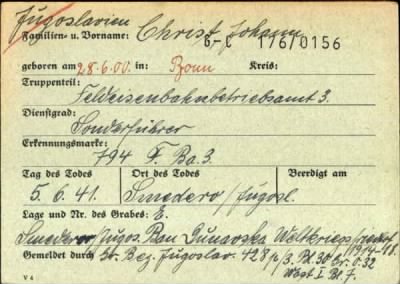 Jugoslavien
Familien- u. Vorname: Christ, Johann
G-C 176/0156
geboren am 28.6.00. in: Bonn Kreis:
Truppenteil:
Feldeisenbahnbetriebsamt 3.
Dienstgrad:
Sonderführer
Erkennungsmarke:
794 F. Ba. 3.
Tag des Todes Ort des Todes Beerdigt am
5.6.41. Smedero/Jugosl.
Lage und Nr. des Grabes: E.
Smederov/Jugos. Ban Dunavska Weltkriegsfriedhof
1914-18.
Gemeldet durch: Gr. Bez. Jugoslav. 428 p/3. Pl. 30 Gr. 0.32
Wgst I Bl. 7.
V 4